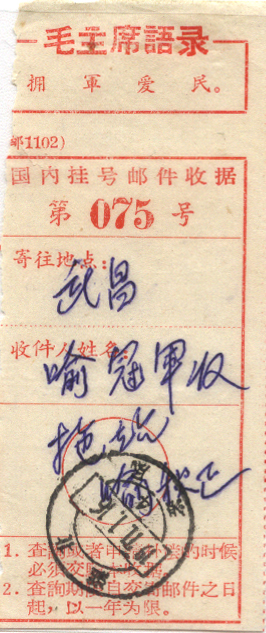 毛主席語录
拥軍爱民。
邮1102)
国内挂号邮件收据
第 075 号
寄往地点:
武昌
收件人姓名:
喻冠軍收
1. 查詢或者申請补偿的时候
必须交验本收据。
2. 查詢期限自交寄邮件之日
起,以一年为限。